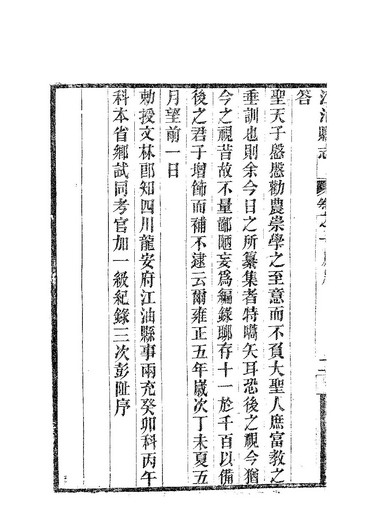 江油縣志
答
聖天子慇慇勸農崇學之至意而不負大聖人庶富教之
垂訓也則余今日之所纂集者特嚆矢耳恐後之視今猶
今之視昔故不量鄙陋妄爲編錄聊存十一於千百以備
後之君子增飾而補不逮云爾雍正五年歲次丁未夏五
月望前一日
勅授文林郎知四川龍安府江油縣事兩充癸卯科丙午
科本省鄉試同考官加一級紀錄三次彭阯序